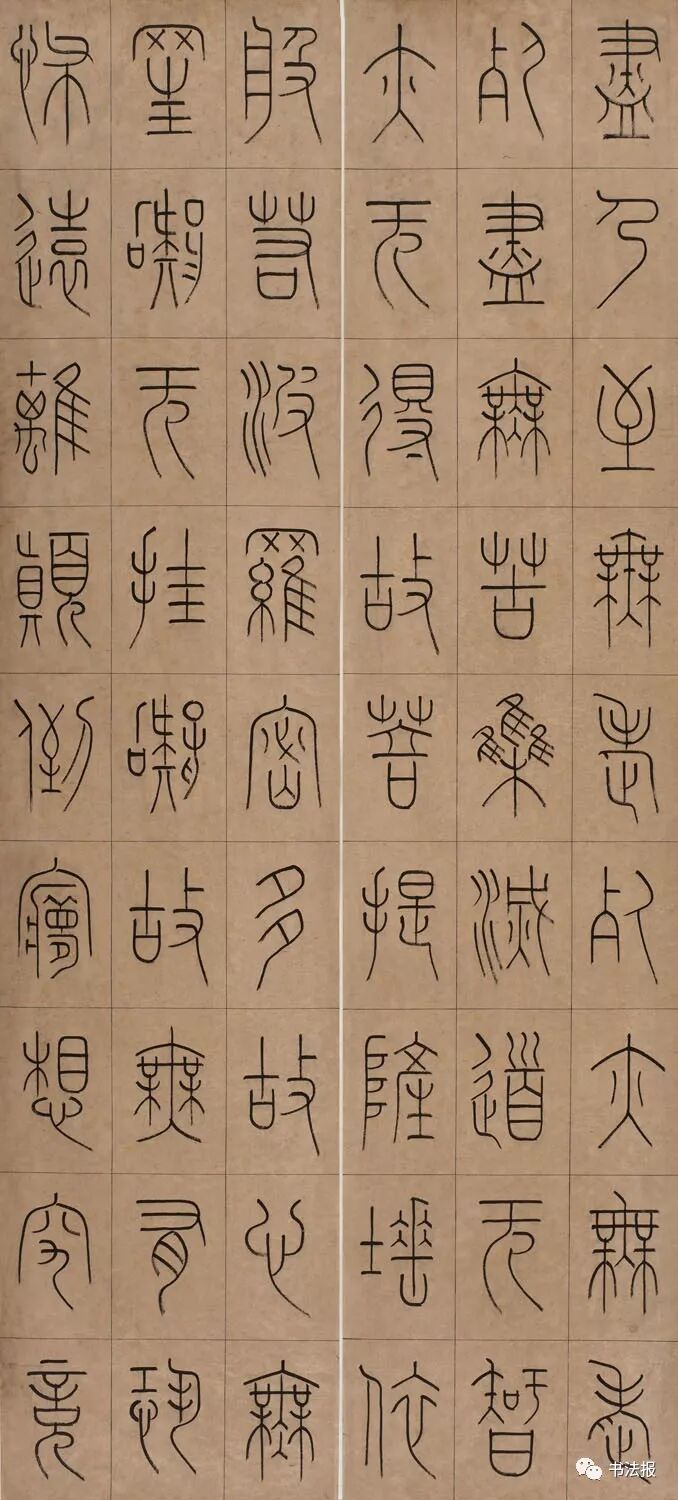 盡乃至無老死亦無老
死盡無苦集滅道无智
亦无得故菩提薩埵依
般若波羅密多故心無
罣礙无挂礙故無有恐
怖遠離顛倒夢想究竟
书法报